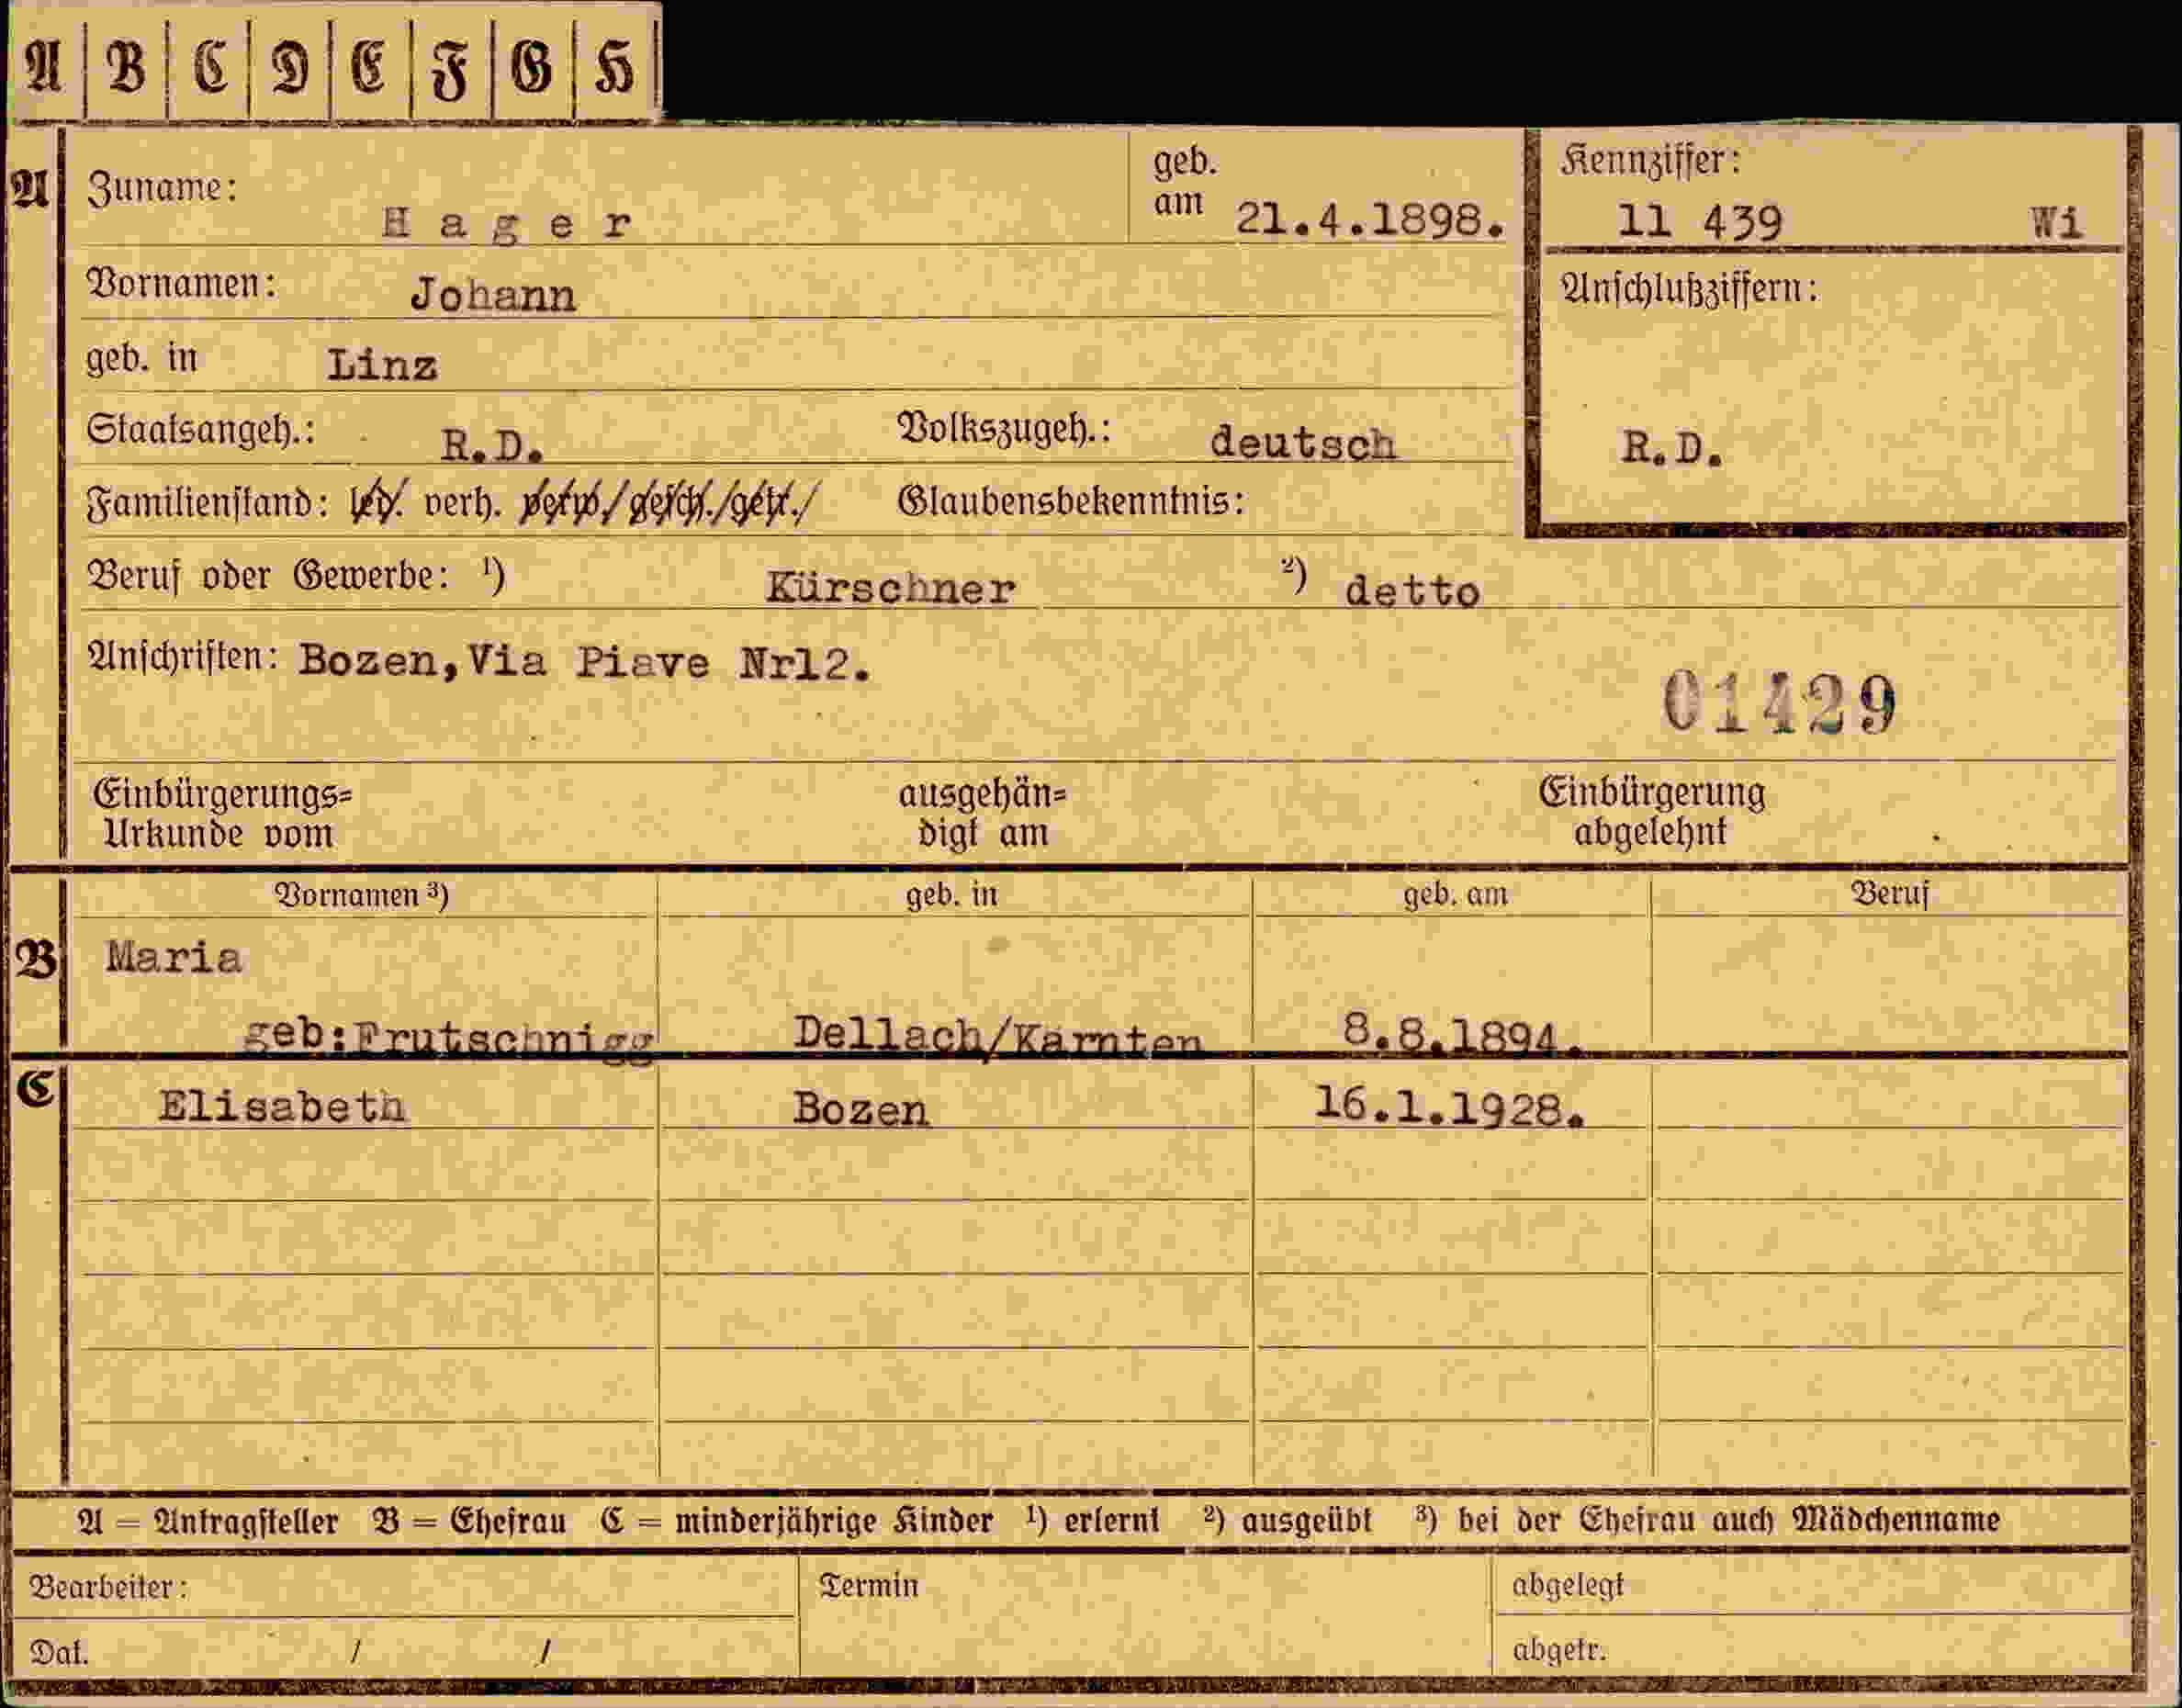 A B C D E F G H
A Zuname: Hager geb. am 21.4.1898. Kennziffer: 11 439 Wi
Vornamen: Johann Anschlußziffern:
geb. in Linz
Staatsangeh.: R.D. Volkszugeh.: deutsch R.D.
Familienstand: led. verh. verw./gesch./getr./ Glaubensbekenntnis:
Beruf oder Gewerbe: ¹) Kürschner ²) detto
Anschriften: Bozen,Via Piave Nr12.
01429
Einbürgerungs= ausgehän= Einbürgerung
Urkunde vom digt am abgelehnt
Vornamen ³) geb. in geb. am Beruf
B Maria
geb:Frutschnigg Dellach/Kärnten 8.8.1894.
C Elisabeth Bozen 16.1.1928.
A = Antragsteller B = Ehefrau C = minderjährige Kinder ¹) erlernt ²) ausgeübt ³) bei der Ehefrau auch Mädchenname
Bearbeiter: Termin abgelegt
Dat. / / abgetr.